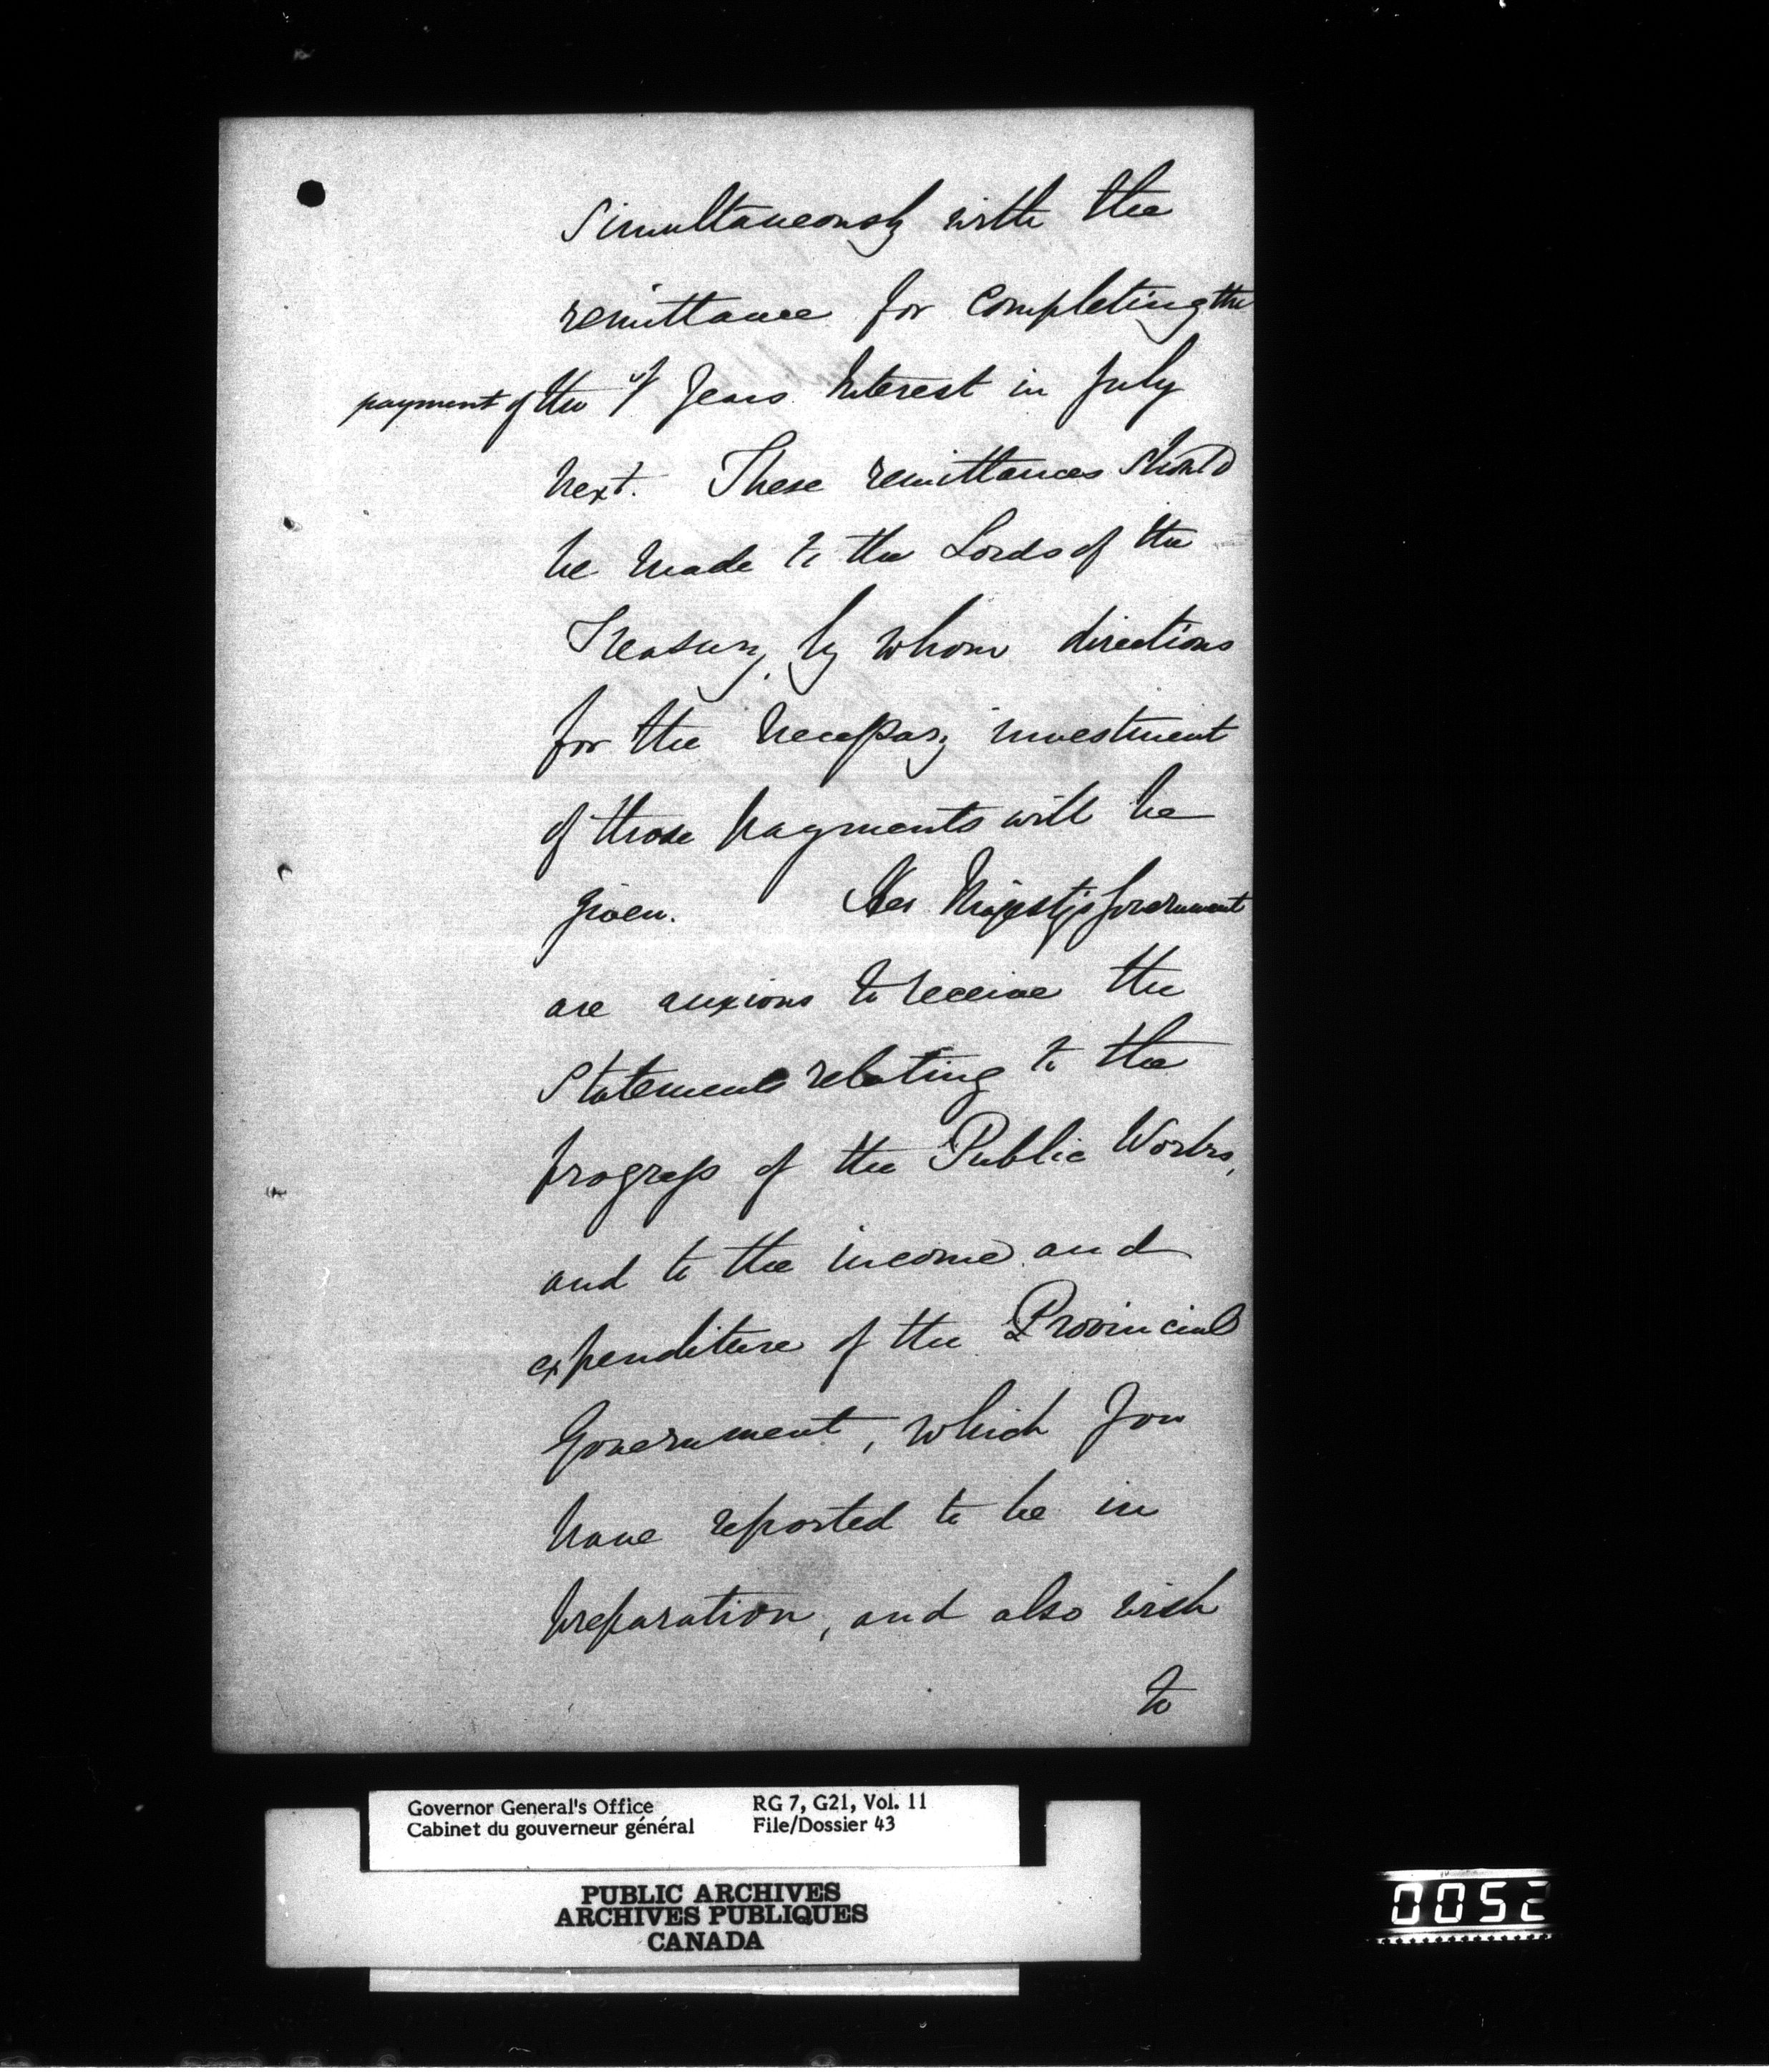 Simultaneously with the
remittance for completing the
payment of the Years Interest in July
next. These remittances should
be made to the Lords of the
Treasury, by whom directions
for the necessary investment
of those payments will be
given. Her Majesty's Government
are anxious to receive the
Statements relating to the
progress of the Public Works,
and to the income and
expenditure of the Provincial
Government, which you
have reported to be in
preparation, and also wish
to
Governor General's Office
Cabinet du gouverneur général
RG 7, G21, Vol. 11
File/Dossier 43
PUBLIC ARCHIVES
ARCHIVES PUBLIQUES
CANADA
0052